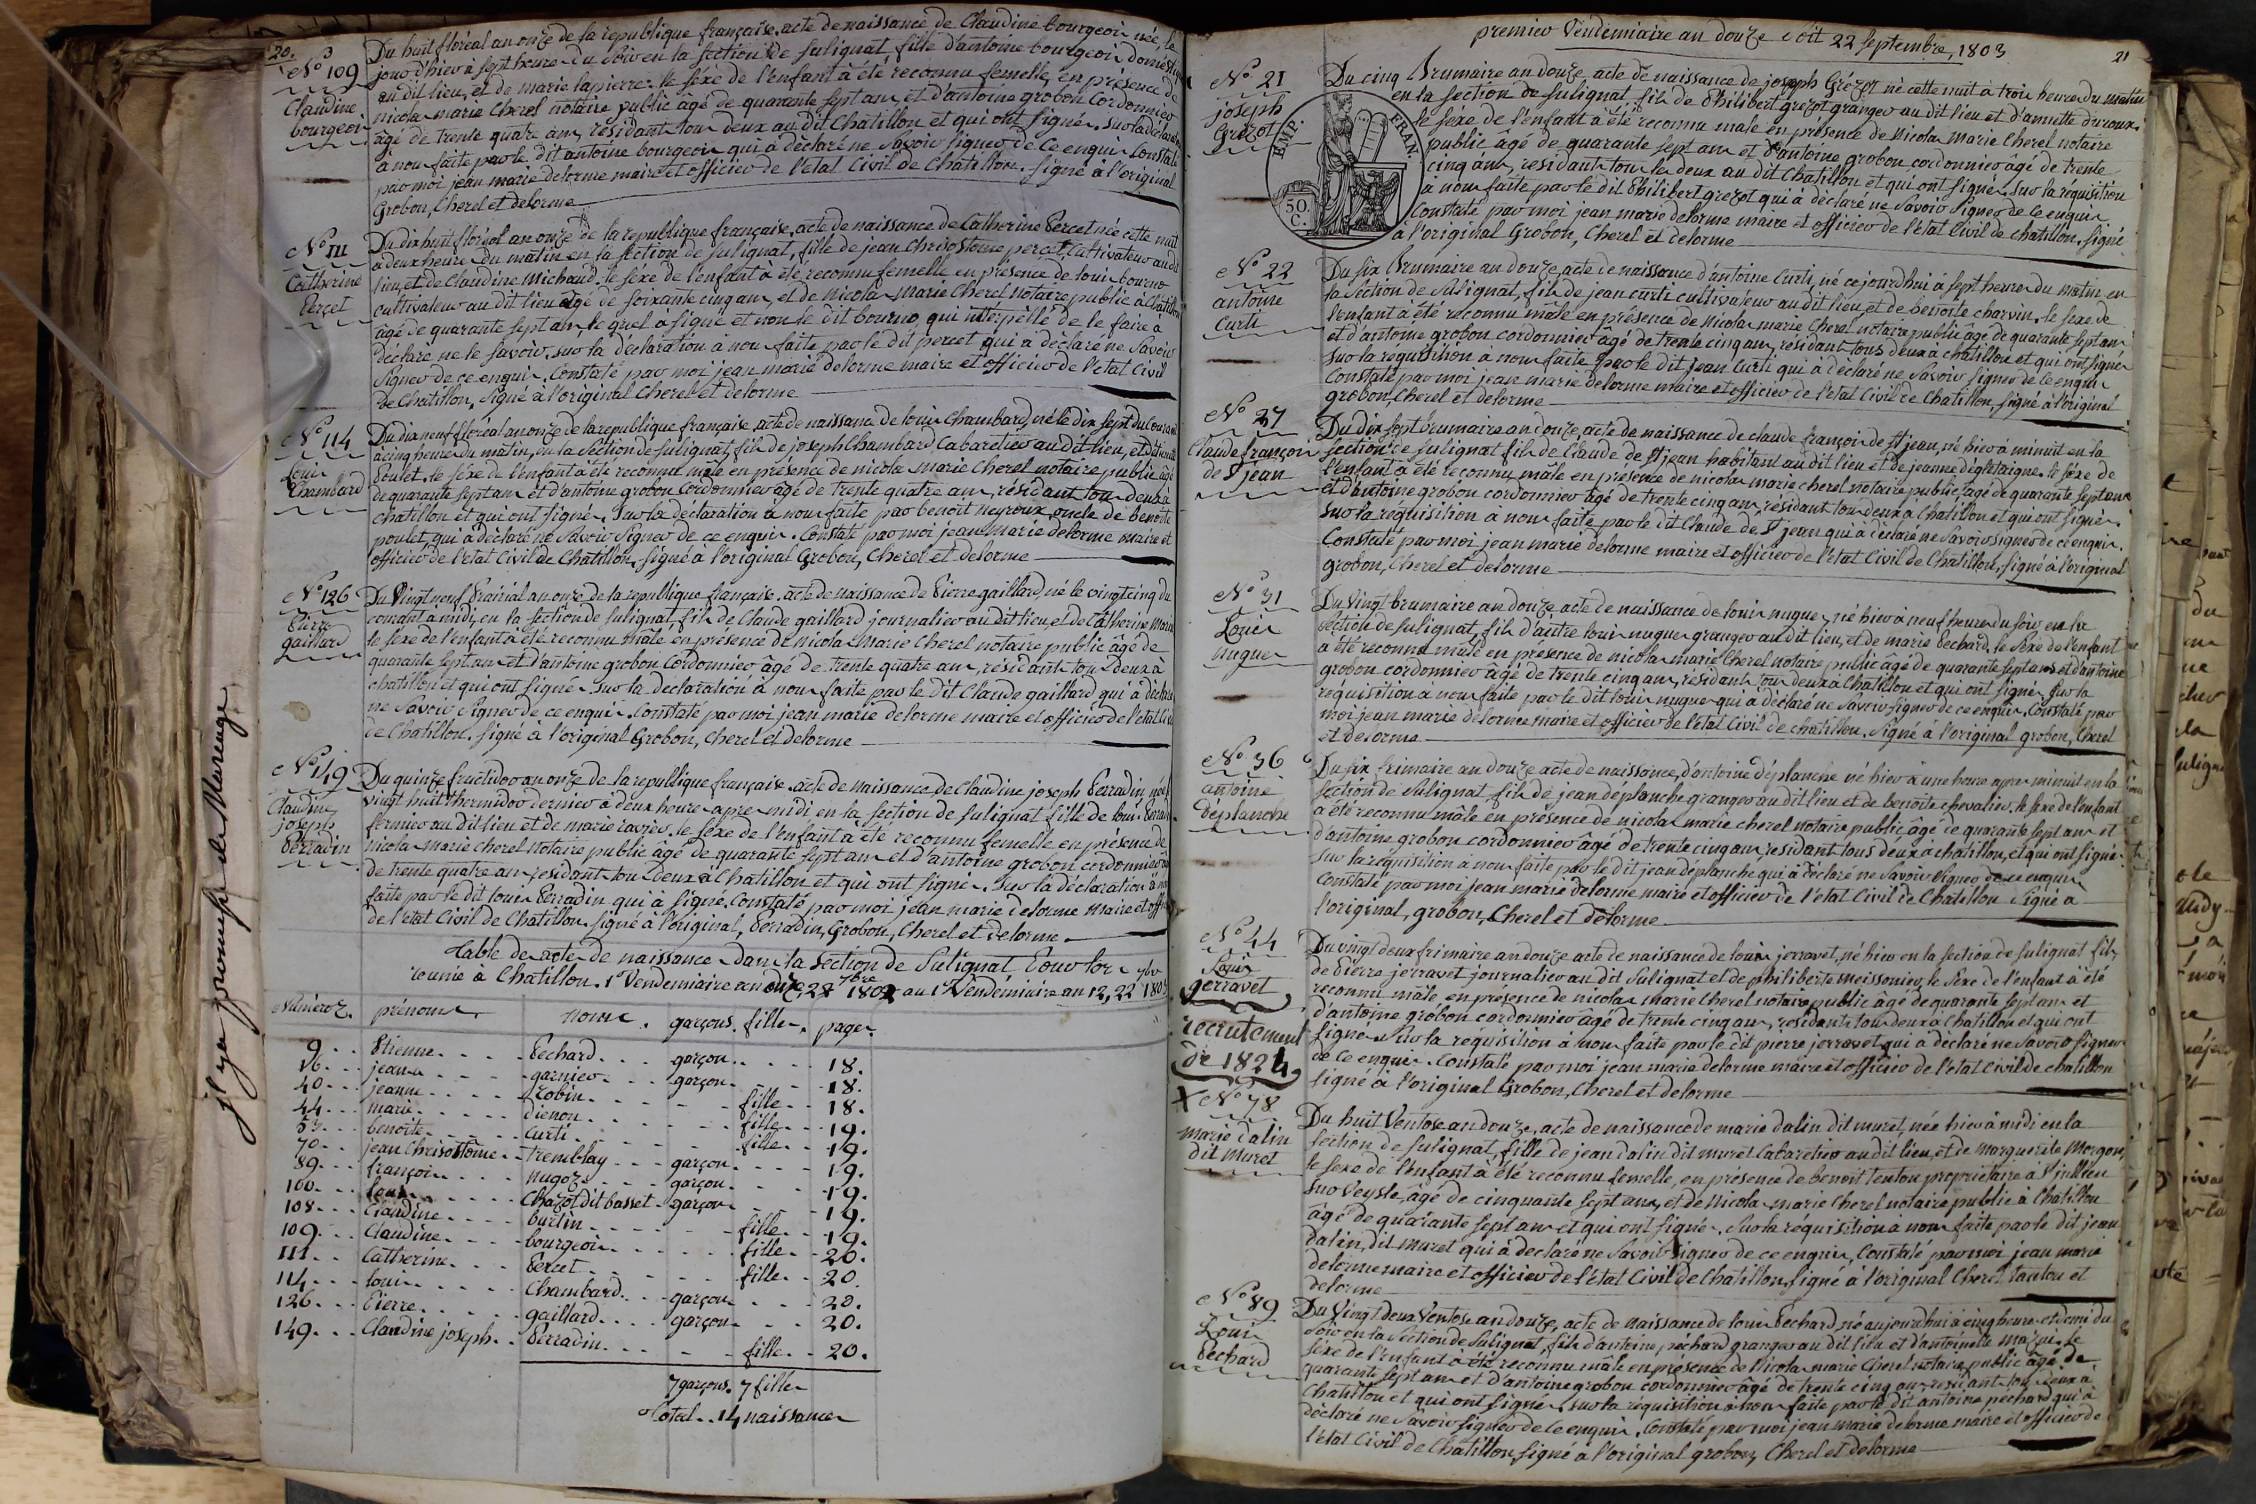 20.
N° 109
Claudine
bourgeois
Du huit floréal an onze de la republique française, acte de naissance de Claudine bourgeois née, le
jour d'hier à sept heures du soir en la section de sulignat, fille d'antoine bourgeois domestique
au dit lieu, et de marie lapierre. le séxe de l'enfant à été reconnu femelle, en présence de
nicolas marie Cherel notaire public âgé de quarante sept ans, et d'antoine grobon Cordonnier
âgé de trente quatre ans, résidants tous deux au dit Chatillon et qui ont signés. sur la déclaration
à nous faite par le dit antoine bourgeois qui à déclaré ne Savoir Signer de Ce enquis. Constaté
par moi jean marie delorme maire et officier de l'état Civil de Chatillon. signé à l'original
Grobon, Cherel et delorme
N° 111
Catherine
Perçet
Du dix huit floréal an onze de la republique française, acte de naissance de Catherine Percet née cette nuit
a deux heures du matin en la section de sulignat, fille de jean Chrisostome percet, Cultivateur au dit
lieu, et de Claudine Michaud. le séxe de l'enfant à été reconnu femelle en présence de louis bourno
cultivateur au dit lieu âgé de soixante cinq ans, et de Nicolas Marie Cherel Notaire public à Chatillon
âgé de quarante sept ans, le quel à signé et non le dit bourno, qui interpellé de le faire a
déclaré ne le savoir. sur la déclaration à nous faite par le dit percet qui a déclaré ne Savoir
Signer de ce enquis. Constaté par moi jean marie delorme maire et officier de l'état Civil
de Chatillon. Signé à l'original Cherel et delorme
N° 114
Louis
Chambard
Du dix neuf floréal an onze de la republique française, acte de naissance de louis Chambard, né le dix sept du Courant
à cinq heures du matin, en la Section de sulignat, fils de joseph Chambard Cabaretier au dit lieu, et de benoite
Poulet. le séxe de l'enfant à été reconnu mâle en présence de nicolas marie Cherel notaire public âgé
de quarante sept ans et d'antoine grobon Cordonnier âgé de trente quatre ans, résidants tous deux à
chatillon et qui ont signés. sur la déclaration à nous faite par benoit neyroux oncle de benoite
poulet, qui à déclaré ne Savoir Signer de ce enquis. Constaté par moi jean marie delorme maire et
officier de l'état Civil de Chatillon, signé à l'original Grobon, Cherel et delorme
N° 126
Pierre
gaillard
Du Vingt neuf Prairial an onze de la republique française. acte de naissance de Pierre gaillard, né le vingt cinq du
courant à midi, en la section de sulignat, fils de Claude gaillard journalier au dit lieu, et de Catherine
le séxe de l'enfant à été reconnu mâle en présence de Nicolas Marie Cherel notaire public âgé de
quarante sept ans et d'antoine grobon Cordonnier âgé de trente quatre ans, résidants tous deux à
chatillon et qui ont signés. sur la déclaration à nous faite par le dit Claude gaillard qui à déclaré
ne Savoir Signer de ce enquis. Constaté par moi jean marie delorme maire et officier de l'état Civil
de Chatillon. signé à l'original Grobon, Cherel et delorme
N° 149
Claudine
joseph
Perradin
Du quinze fructidor an onze de la republique française. acte de naissance de Claudine joseph Perradin, née le
vingt huit thermidor dernier à deux heures apres midi en la section de sulignat fille de louis Perradin
fermier au dit lieu et de marie ravier. le séxe de l'enfant à été reconnu femelle en présence de
nicolas marie Cherel notaire public âgé de quarante sept ans et d'antoine grobon cordonnier âgé
de trente quatre ans residants tous Deux à Chatillon et qui ont signés. sur la déclaration à nous
faite par le dit louis Perradin qui à signé. Constaté par moi jean marie delorme maire et officier
de l'état Civil de Chatillon. signé à l'original, Perradin, Grobon, Cherel et delorme.
Table des actes de naissances dans la section de Sulignat Pour lors
réunie à Chatillon. 1er Vendemiaire an onze, 22 7bre 1802 au 1er Vendemiaire an 12, 22 7bre 1803
Numéros. prénoms. noms. garçons. filles. pages.
9 Etienne Pechard garçon 18.
16 jean garnier garçon 18.
40 jeanne Robin fille 18.
44 marie dienon fille 19.
53 benoite Curti fille 19.
70 jean Chrisostôme tremblay garçon 19.
89 françois nugoz garçon 19.
100 louis Chazot dit basset garçon 19.
108 Claudine burtin fille 19.
109 Claudine bourgeois fille 20.
111 Catherine Percet fille 20.
114 louis Chambard garçon 20.
126 Pierre gaillard garçon 20.
149 Claudine joseph Perradin fille 20.
7 garçons. 7 filles
Total .. 14 naissances
premier Vendémiaire an douze soit 22 septembre, 1803
21
N° 21
joseph
Grézot
EMP. FRAN.
50. C.
Du cinq Brumaire an douze, acte de naissance de joseph Grézot né cette nuit à trois heures du matin
en la section de sulignat, fils de Philibert grezot granger au dit lieu et d'annette duroux.
le sexe de l'enfant a été reconnu male en présence de Nicolas Marie Cherel notaire
public âgé de quarante sept ans et d'antoine grobon cordonnier âgé de trente
cinq ans, residants tous les deux au dit Chatillon et qui ont signés. sur la réquisition
à nous faite par le dit Philibert grezot qui à déclaré ne Savoir Signer de Ce enquis
Constaté par moi jean marie delorme maire et officier de l'état Civil de chatillon, signé
à l'original Grobon, Cherel et delorme
N° 22
antoine
Curti
Du six Brumaire an douze, acte de naissance d'antoine Curti, né ce jourd'hui à sept heures du matin en
la Section de Sulignat, fils de jean curti cultivateur au dit lieu et de benoite charvin. le sexe de
l'enfant à été reconnu mâle en présence de Nicolas marie Cherel notaire public âgé de quarante sept ans
et d'antoine grobon cordonnier âgé de trente cinq ans, résidants tous deux à chatillon et qui ont signés
sur la réquisition à nous faite par le dit jean Curti qui à déclaré ne Savoir Signer de Ce enquis
Constaté par moi jean marie delorme maire et officier de l'état Civil de Chatillon, signé à l'original
grobon, Cherel et delorme
N° 27
Claude françois
de St jean
Du Dix sept brumaire an douze, acte de naissance de claude françois de St jean, né hier à minuit en la
section de sulignat fils de Claude de St jean habitant au dit lieu et de jeanne dégletaigne. le séxe de
l'enfant à été reconnu mâle en présence de nicolas marie cherel notaire public, âgé de quarante sept ans
et d'antoine grobon cordonnier âgé de trente cinq ans, résidants tous deux à Chatillon et qui ont signés.
sur la réquisition à nous faite par le dit Claude de St jean qui à déclaré ne Savoir signer de ce enquis.
Constaté par moi jean marie delorme maire et officier de l'état Civil de Chatillon, signé à l'original
grobon, Cherel et delorme
N° 31
Louis
nugues
Du Vingt brumaire an douze acte de naissance de louis nugues, né hier à neuf heures du soir en la
section de sulignat, fils d'autre louis nugues granger au dit lieu, et de marie Pechard. le Séxe de l'enfant
a été reconnu male en presence de nicolas marie Cherel notaire public âgé de quarante sept ans et d'antoine
grobon cordonnier âgé de trente cinq ans, résidants tous deux à Chatillon et qui ont signés. sur la
réquisition a nous faite par le dit louis nugues qui à déclaré ne Savoir signer de ce enquis. Constaté par
moi jean marie delorme maire et officier de l'état Civil de chatillon. Signé à l'original grobon, Cherel
et delorme
N° 36
antoine
Déplanche
Du six frimaire an douze acte de naissance, d'antoine déplanche né hier à une heure apres minuit en la
section de sulignat, fils de jean déplanche granger au dit lieu et de benoîte chevalier. le sexe de l'enfant
a été reconnu mâle en présence de nicolas marie cherel notaire public âgé de quarante sept ans et
d'antoine grobon cordonnier âgé de trente cinq ans, residants tous deux à chatillon, et qui ont signés
sur la réquisition à nous faite par le dit jean déplanche qui à déclaré ne Savoir Signer de ce enquis
Constaté par moi jean marie delorme maire et officier de l'état Civil de Chatillon Signé à
l'original, grobon, Cherel et delorme
N° 44
Louis
gerravet
recrutement
de 1824
Du vingt deux frimaire an douze acte de naissance de louis jerravet, né hier en la section de sulignat fils
de Pierre jerravet journalier au dit Sulignat et de philiberte meissonier, le Séxe de l'enfant à été
reconnu mâle, en présence de nicolas marie Cherel notaire public âgé de quarante sept ans et
d'antoine grobon cordonnier âgé de trente cinq ans, residants tous deux à Chatillon et qui ont
signés. Sur la réquisition à nous faite par le dit pierre jerravet qui à déclaré ne Savoir Signer
de Ce enquis. Constaté par moi jean marie delorme maire et officier de l'état Civil de chatillon
signé à l'original Grobon, Cherel et delorme
X N° 78
marie dalin
dit Muret
Du huit Ventose an douze, acte de naissance de marie dalin dit muret, née hier à midi en la
section de sulignat, fille de jean dalin dit muret Cabaretier au dit lieu, et de marguerite Morgon,
le sexe de l'enfant à été reconnu femelle, en présence de benoit tenton propriétaire à St jullien
sur Veysle, âgé de cinquante sept ans, et de Nicolas marie Cherel notaire public à Chatillon
âgé de quarante sept ans et qui ont signés. Sur la réquisition à nous faite par le dit jean
dalin, dit Muret qui à déclaré ne Savoir Signer de ce enquis, Constaté par moi jean marie
delorme maire et officier de l'état Civil de Chatillon, signé à l'original Cherel tanton et
delorme
N° 89
Louis
Pechard
Du Vingt deux Ventose an douze, acte de naissance de louis Pechard, né aujourdhui à cinq heures et demi du
soir en la Section de Sulignat, fils d'antoine péchard granger au dit lieu et d'antoinette mazui. le
séxe de l'enfant à été reconnu mâle en présence de Nicolas marie Cherel notaire public âgé de
quarante sept ans et d'antoine grobon cordonnier âgé de trente cinq ans, residants tous deux à
Chatillon et qui ont signés, sur la requisition à nous faite par le dit antoine péchard qui à
déclaré ne Savoir signer de Ce enquis. Constaté par moi jean marie delorme maire et officier de
l'état Civil de Chatillon, signé à l'original grobon, Cherel et delorme